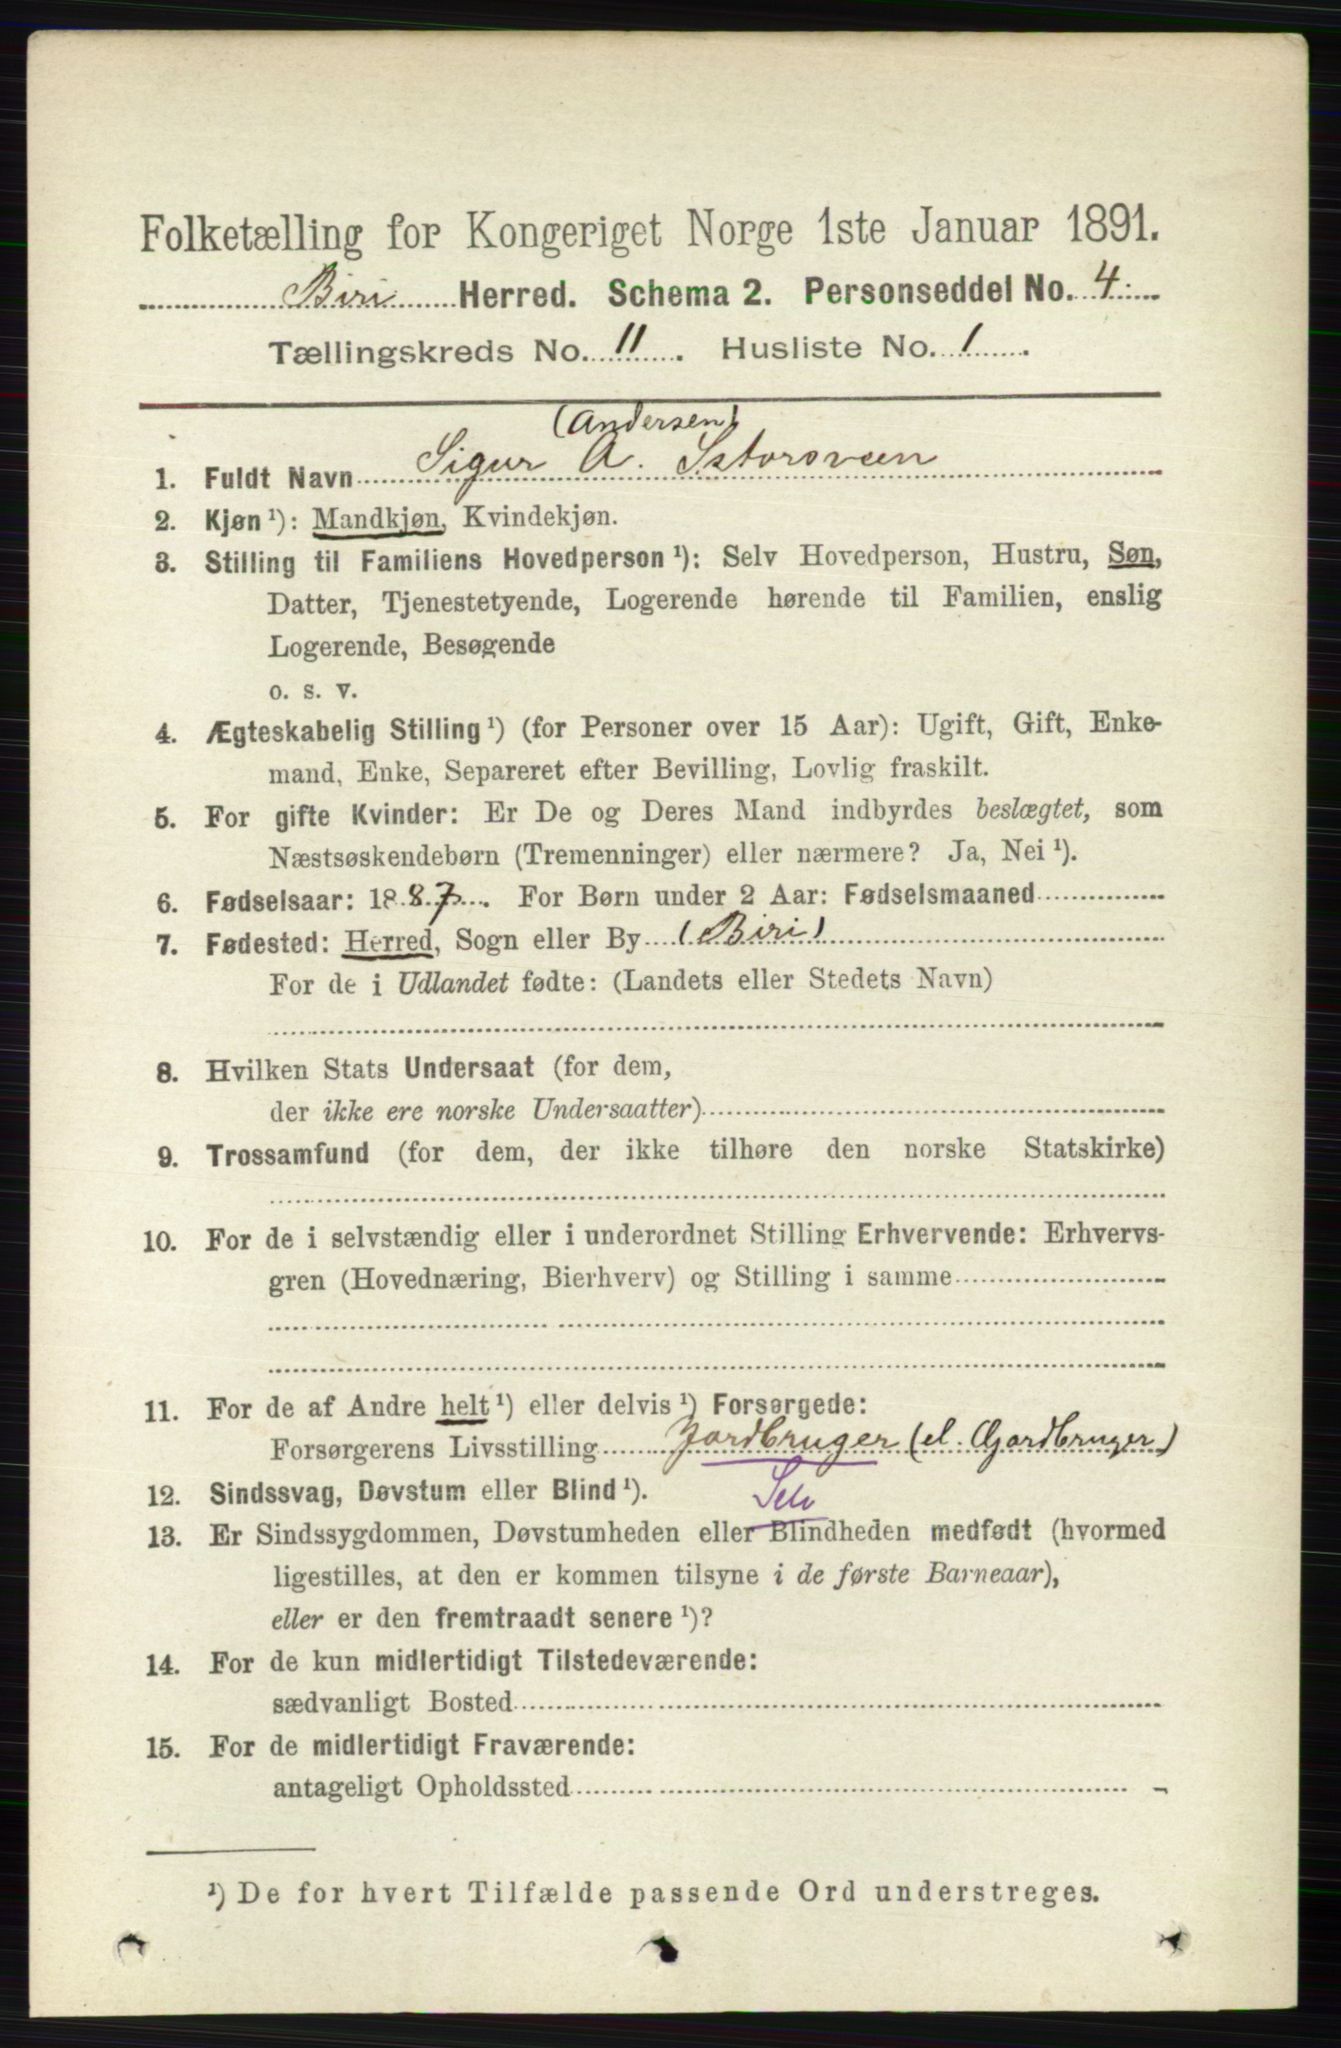 Folketælling for Kongeriget Norge 1ste Januar 1891.
Biri Herred. Schema 2. Personseddel No. 4.
Tællingskreds No. 11. Husliste No. 1.
(Andersen)
1. Fuldt Navn Sigur A. Sstorsveen
2. Kjøn ¹): Mandkjøn, Kvindekjøn.
3. Stilling til Familiens Hovedperson ¹): Selv Hovedperson, Hustru, Søn,
Datter, Tjenestetyende, Logerende hørende til Familien, enslig
Logerende, Besøgende
o. s. v.
4. Ægteskabelig Stilling ¹) (for Personer over 15 Aar): Ugift, Gift, Enke-
mand, Enke, Separeret efter Bevilling, Lovlig fraskilt.
5. For gifte Kvinder: Er De og Deres Mand indbyrdes beslægtet, som
Næstsøskendebørn (Tremenninger) eller nærmere? Ja, Nei ¹).
6. Fødselsaar: 1887. For Børn under 2 Aar: Fødselsmaaned
7. Fødested: Herred, Sogn eller By (Biri)
For de i Udlandet fødte: (Landets eller Stedets Navn)
8. Hvilken Stats Undersaat (for dem,
der ikke ere norske Undersaatter)
9. Trossamfund (for dem, der ikke tilhøre den norske Statskirke)
10. For de i selvstændig eller i underordnet Stilling Erhvervende: Erhvervs-
gren (Hovednæring, Bierhverv) og Stilling i samme
11. For de af Andre helt ¹) eller delvis ¹) Forsørgede:
Forsørgerens Livsstilling Jordbruger (el. Gjordbruger)
12. Sindssvag, Døvstum eller Blind ¹). Selv
13. Er Sindssygdommen, Døvstumheden eller Blindheden medfødt (hvormed
ligestilles, at den er kommen tilsyne i de første Barneaar),
eller er den fremtraadt senere ¹)?
14. For de kun midlertidigt Tilstedeværende:
sædvanligt Bosted
15. For de midlertidigt Fraværende:
antageligt Opholdssted
¹) De for hvert Tilfælde passende Ord understreges.